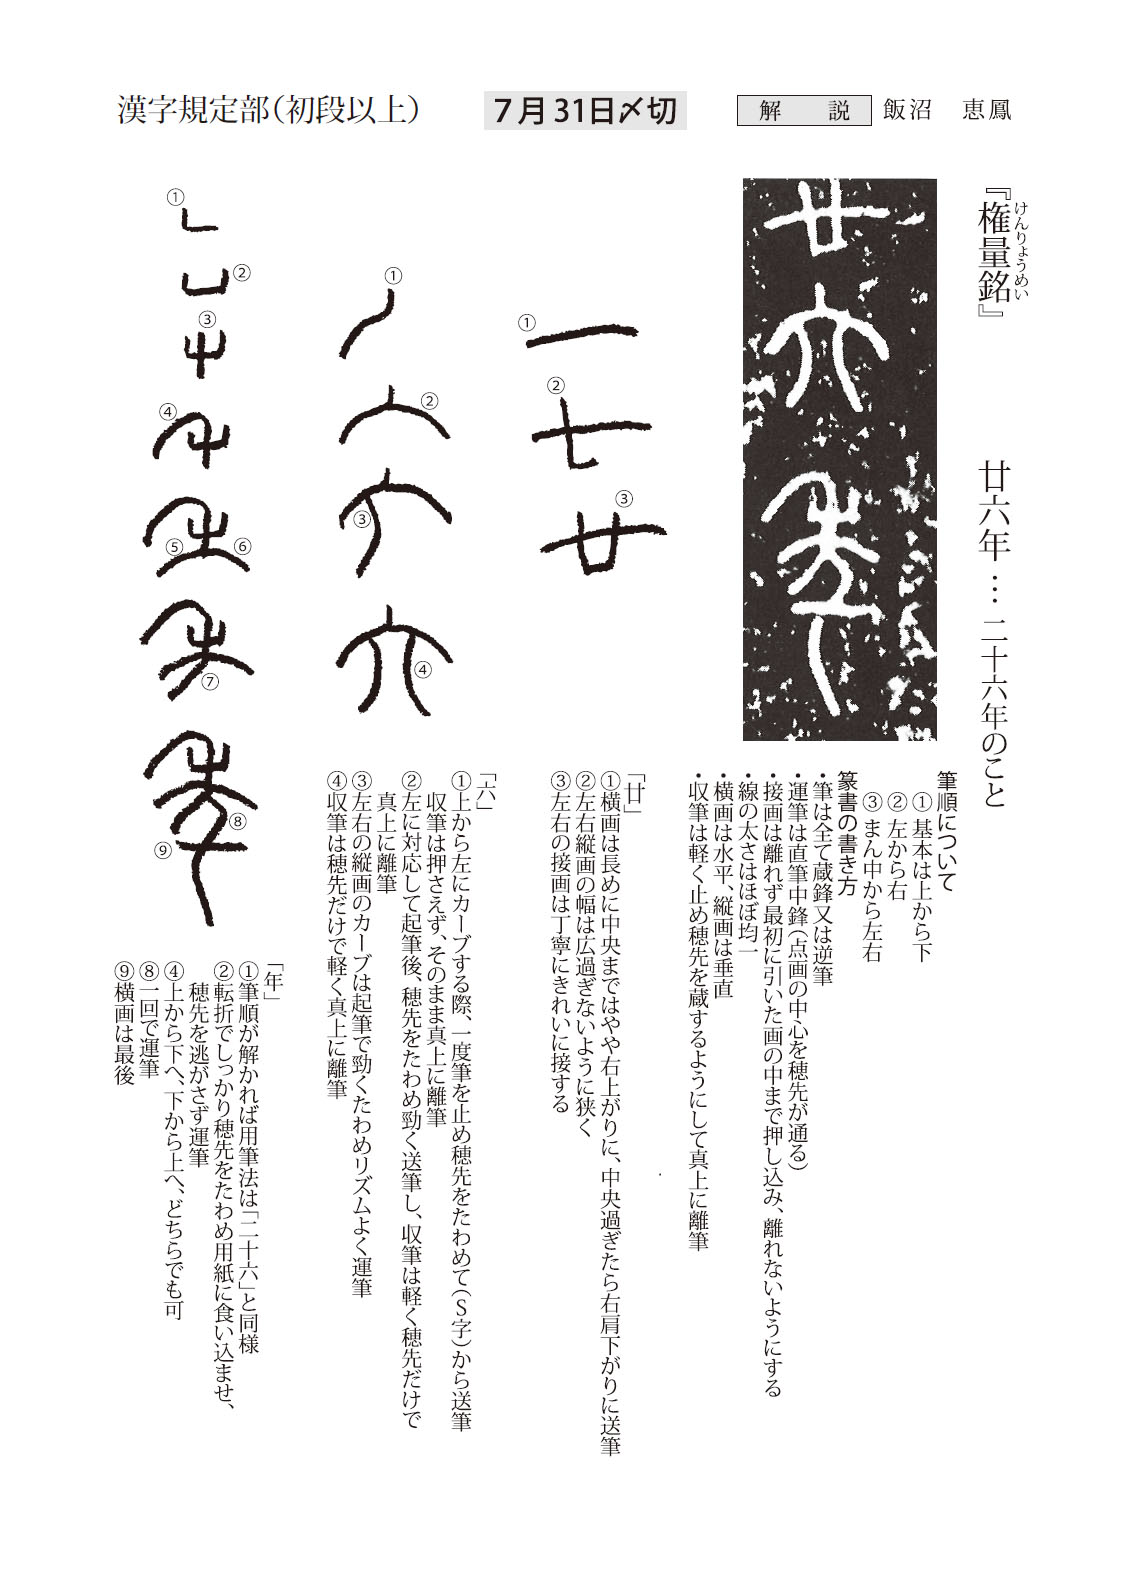 漢字規定部（初段以上）
７月31日〆切
解　説　飯沼　恵鳳
『権量銘』
けんりょうめい
廿六年…二十六年のこと
廿六年
筆順について
①基本は上から下
②左から右
③まん中から左右
篆書の書き方
・筆は全て蔵鋒又は逆筆
・運筆は直筆中鋒（点画の中心を穂先が通る）
・接画は離れず最初に引いた画の中まで押し込み、離れないようにする
・線の太さはほぼ均一
・横画は水平、縦画は垂直
・収筆は軽く止め穂先を蔵するようにして真上に離筆
①
②
③
「廿」
①横画は長めに中央まではやや右上がりに、中央過ぎたら右肩下がりに送筆
②左右縦画の幅は広過ぎないように狭く
③左右の接画は丁寧にきれいに接する
①
②
③
④
「六」
①上から左にカーブする際、一度筆を止め穂先をたわめて（Ｓ字）から送筆
収筆は押さえず、そのまま真上に離筆
②左に対応して起筆後、穂先をたわめ勁く送筆し、収筆は軽く穂先だけで
真上に離筆
③左右の縦画のカーブは起筆で勁くたわめリズムよく運筆
④収筆は穂先だけで軽く真上に離筆
①
②
③
④
⑤
⑥
⑦
⑧
⑨
「年」
①筆順が解かれば用筆法は「二十六」と同様
②転折でしっかり穂先をたわめ用紙に食い込ませ、
穂先を逃がさず運筆
④上から下へ、下から上へ、どちらでも可
⑧一回で運筆
⑨横画は最後